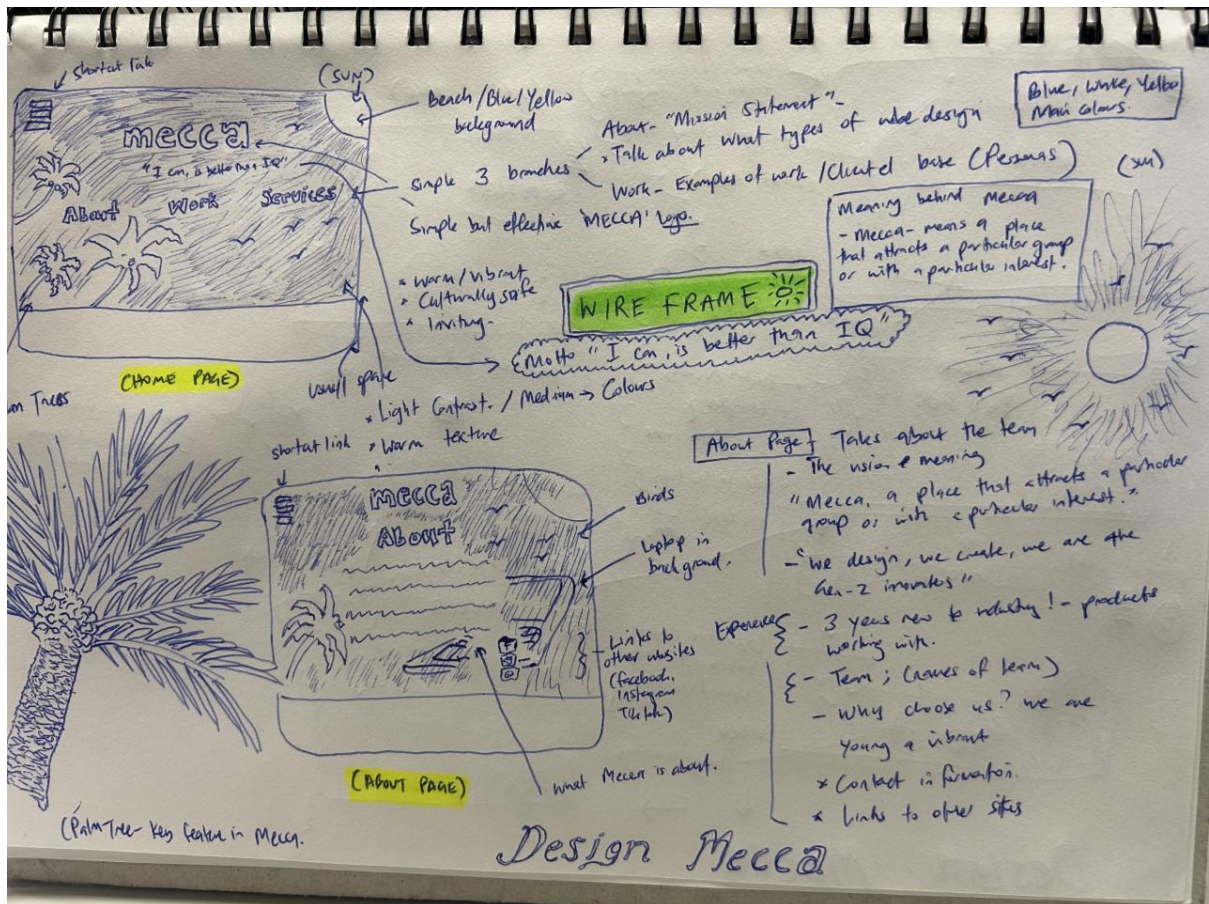 Shortcut link
(SUN)
mecca
"I can, is better than IQ"
About
Work
Services
(HOME PAGE)
Beach/Blue/Yellow
background
Simple 3 branches
About - "Mission Statement" -
* Talk about what types of wibe design
Work - Examples of work / Clientel base (Personas)
Simple but effective 'MECCA' logo.
* Warm/vibrant
* Culturally safe
* Inviting.
Blue, White, Yellow
Main colours.
Meaning behind Mecca
- Mecca - means a place
that attracts a particular group
or with a particular interest.
(SUN)
WIRE FRAME
Motto "I can, is better than IQ"
space
* Light Contrast / Medium → Colours
* Warm texture
Trees
shortcut link
mecca
About
Birds
Laptop in
background.
- Links to
other websites
(facebook,
Instagram
TikTok)
What Mecca is about.
(ABOUT PAGE)
(Palm Tree - Key feature in Mecca.
About Page - Talks about the team
- The vision & meaning
"Mecca, a place that attracts a particular
group or with a particular interest."
- "We design, we create, we are the
Gen-Z inovates"
Experience { - 3 years new to industry! - products
working with.
{ - Team ; (names of team)
- Why choose us? we are
young a vibrant
* Contact information.
* Links to other sites
Design Mecca